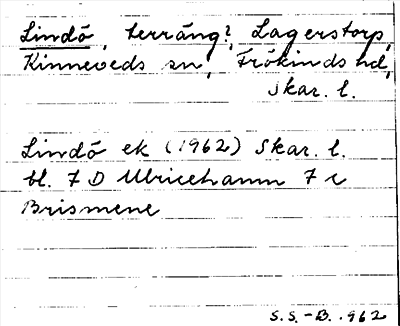 Lindö, terräng?, Lagerstorp,
Kinneveds sn, Frökinds hd,
Skar. l.
Lindö ek (1962) Skar. l.
bl. 7 D Ulricehamn 7 c
Brismene
S.S.-B. 962